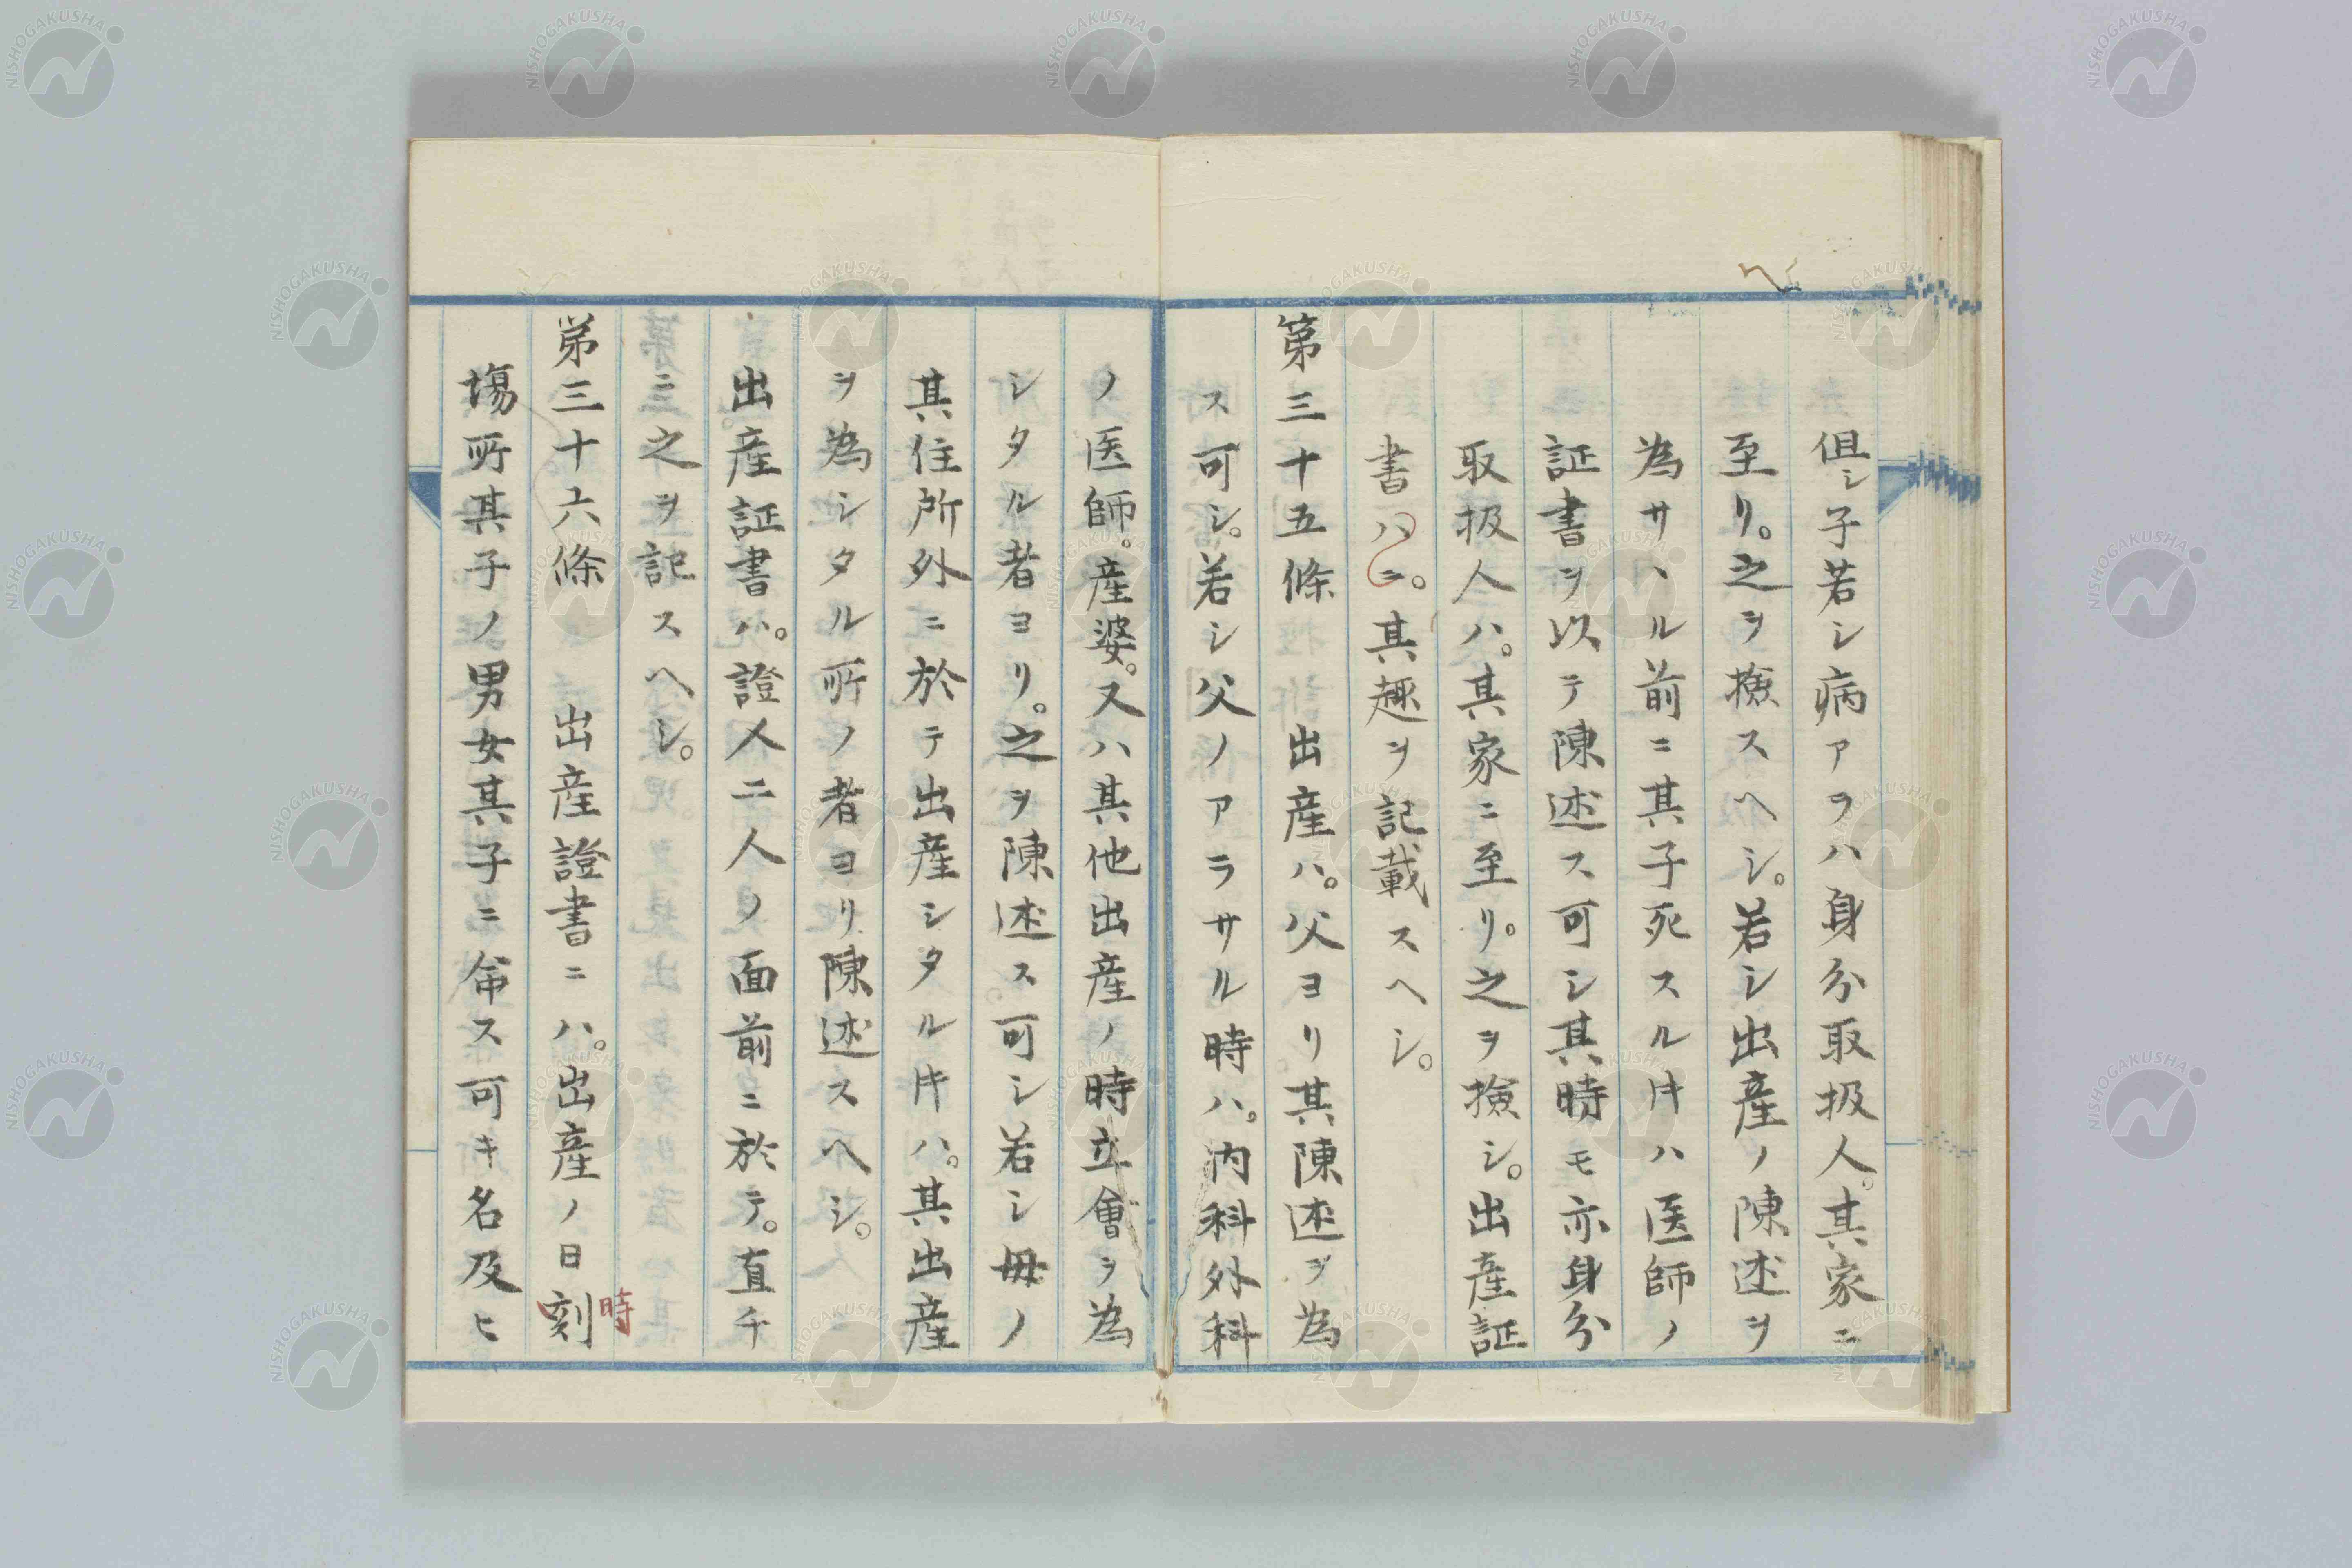 但シ子若シ病アラハ身分取扱人。其家ニ
至リ。之ヲ撿スヘシ。若シ出産ノ陳述ヲ
為サヽル前ニ其子死スル片ハ医師ノ
証書ヲ以テ陳述ス可シ其時モ亦身分
取扱人ハ。其家ニ至リ。之ヲ撿シ。出産証
書ハニ。其趣ヲ記載スヘシ。
第三十五條　出産ハ。父ヨリ其陳述ヲ為
ス可シ。若シ父ノアラサル時ハ。内科外科
ノ医師。産婆。又ハ其他出産ノ時立會ヲ為
シタル者ヨリ。之ヲ陳述ス可シ若シ毋ノ
其住所外ニ於テ出産シタル片ハ。其出産
ヲ為シタル所ノ者ヨリ陳述スヘシ。
出産証書ハ。證人二人ノ面前ニ於テ。直チ
ニ之ヲ記スヘシ。
第三十六條　出産證書ニハ。出産ノ日刻
時
塲所其子ノ男女其子ニ命ス可キ名及ヒ
NISHOGAKUSHA